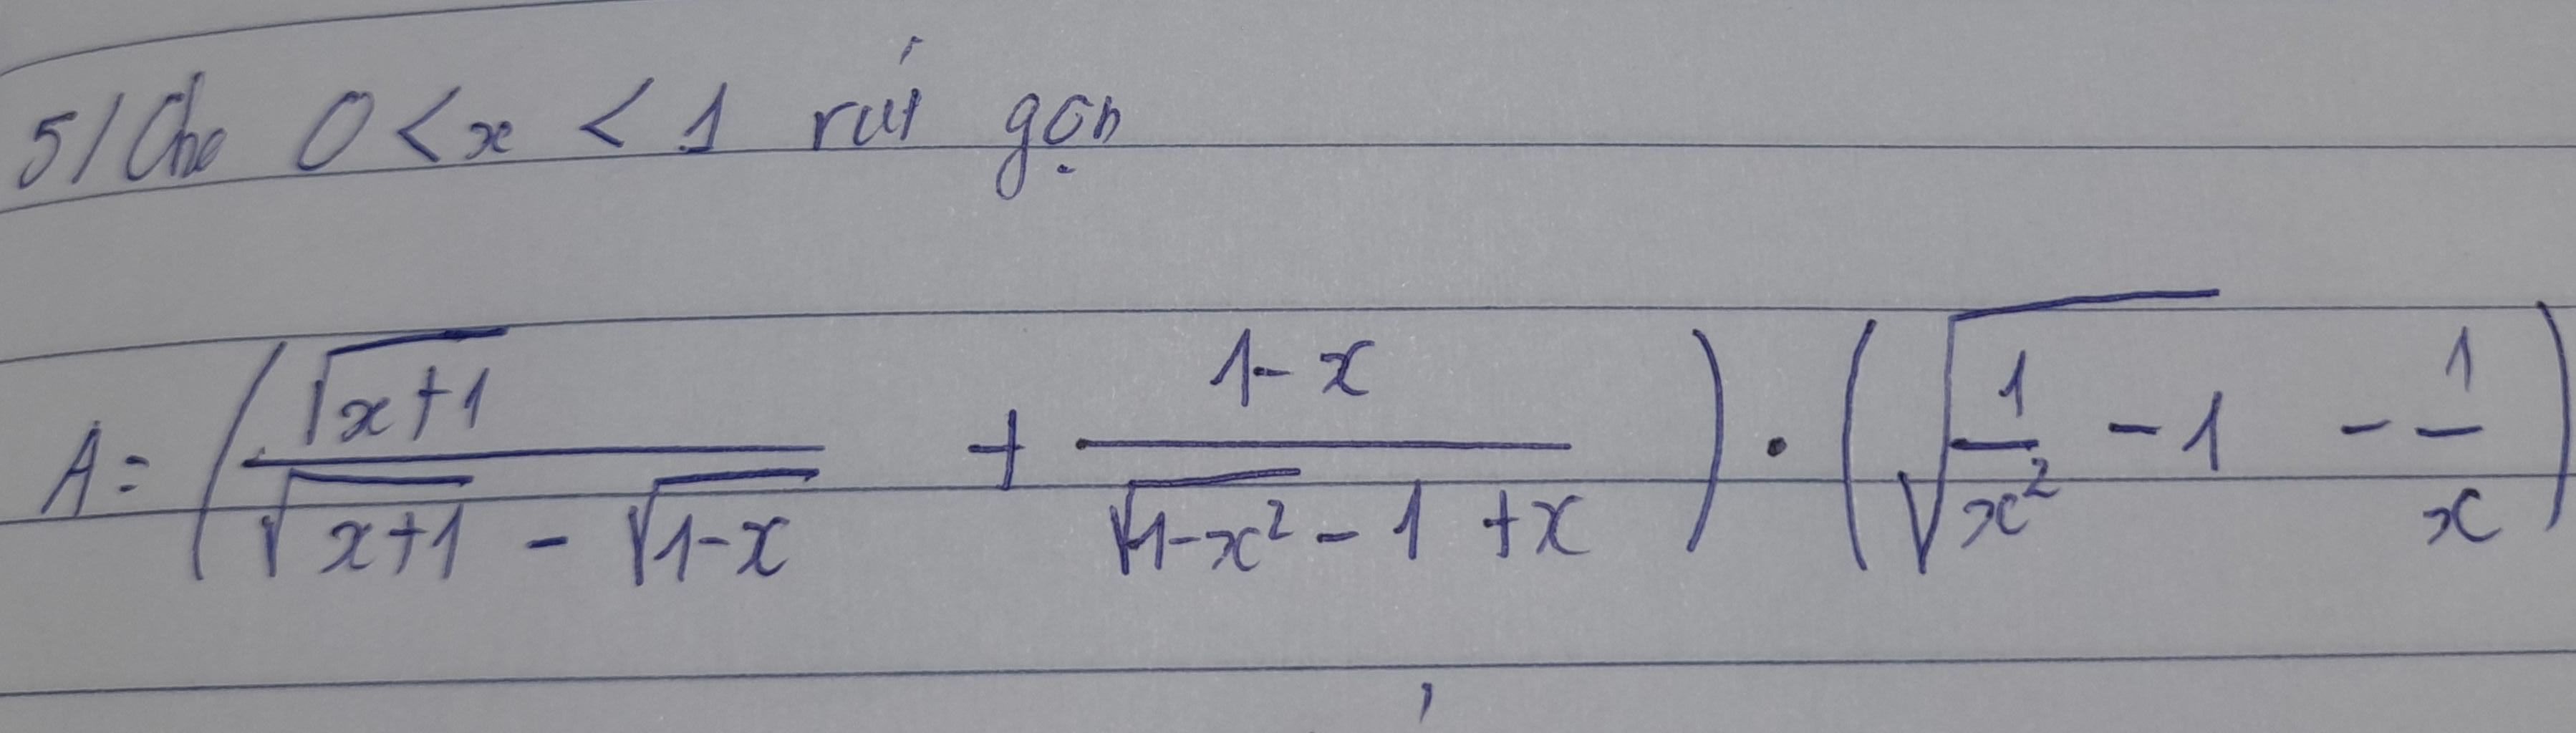 5/ Cho 0 < x < 1 rút gọn
A = ( √(x+1) / (√(x+1) - √(1-x)) + (1-x) / (√(1-x²) - 1 + x) ) · ( √(1/x² - 1) - 1/x )